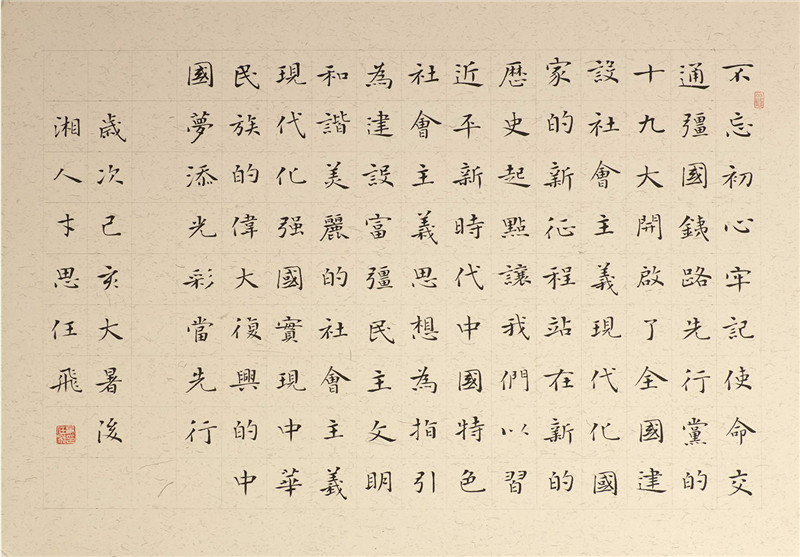 不忘初心牢記使命交
通彊國銕路先行黨的
十九大開啟了全國建
設社會主義現代化國
家的新征程站在新的
歷史起點讓我們以習
近平新時代中國特色
社會主義思想為指引
為建設富彊民主文明
和諧美麗的社會主義
現代化强國實現中華
民族的偉大復興的中
國夢添光彩當先行
歲次己亥大暑後
湘人思任飛